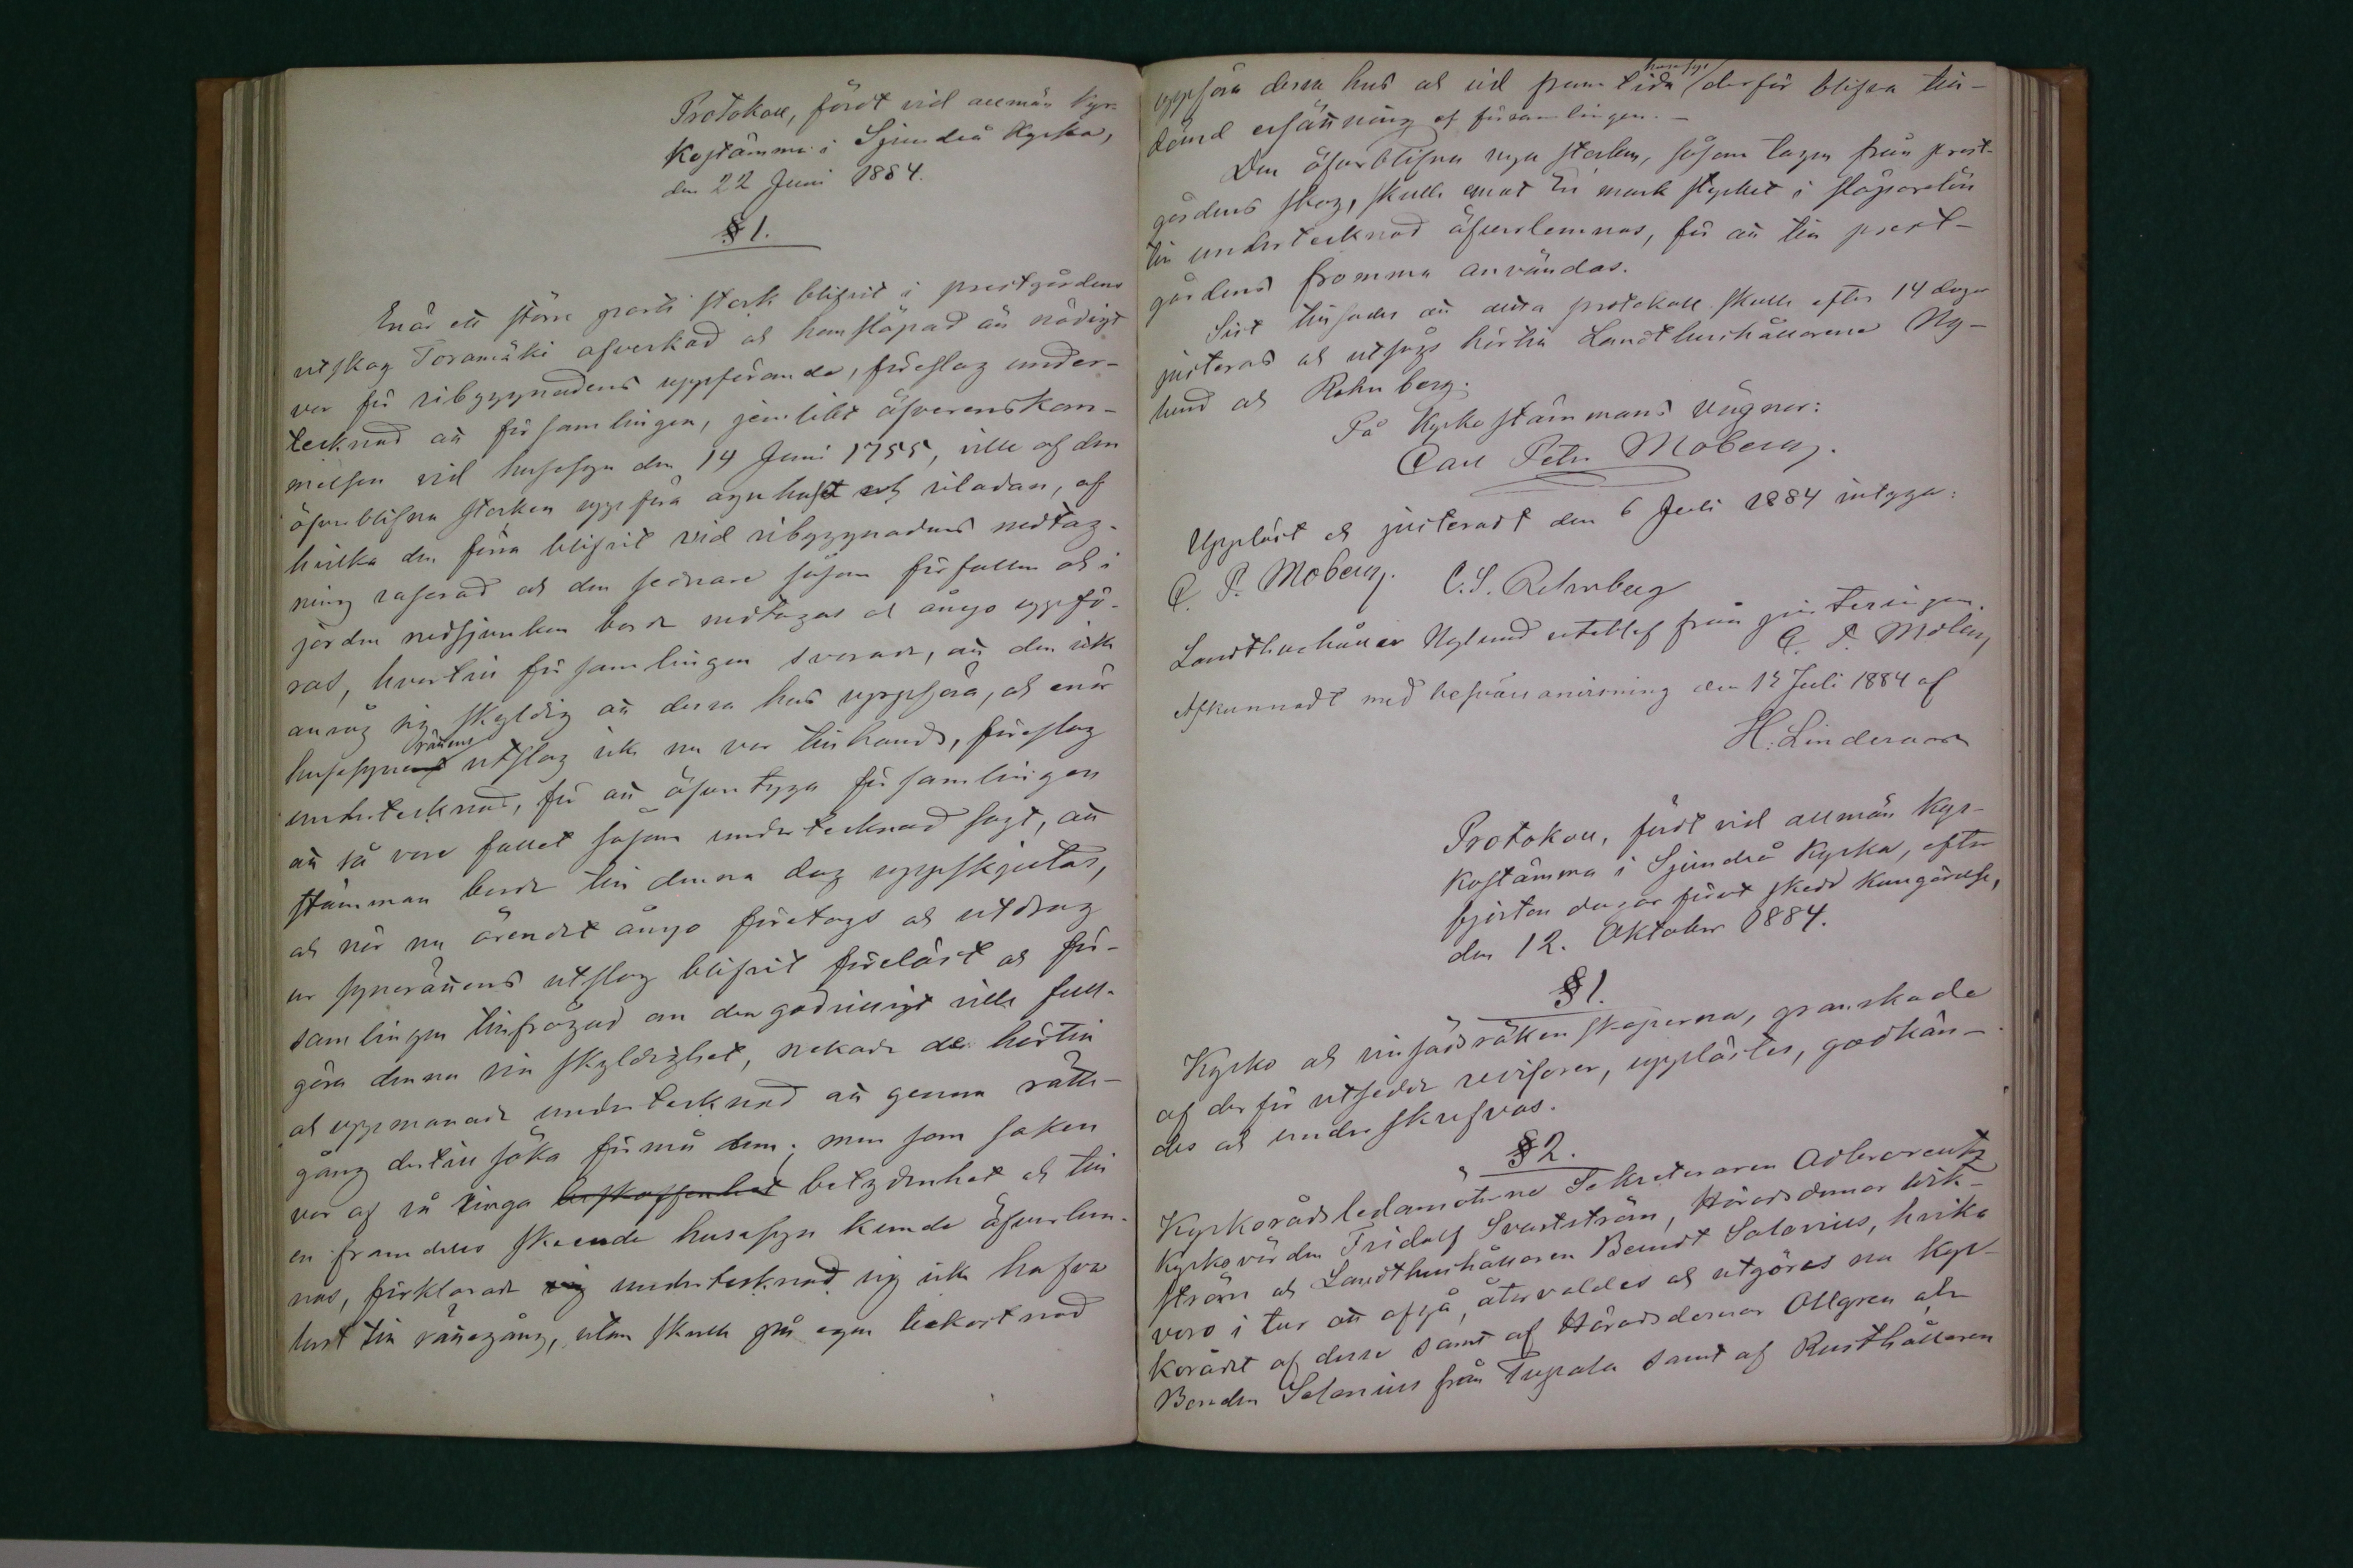 Protokoll, fördt vid allmän Kyr-
kostämma i Sjundeå Kyrka,
den 22 Juni 1884.
§ 1.
Enär ett större parti stock blifvit i prestgårdens
utskog Toramäki afverkad och hemsläpad än nödigt
var för ribyggnadens uppförande, föreslog under-
tecknad att församlingen, jemlikt öfverenskom-
melsen vid husesyn den 14 Juni 1755, ville af den
öfverblifna stocken uppföra agnhuset och riladan, af
hvilka den förra blifvit vid ribyggnadens nedtag-
ning raserad och den sednare såsom förfallen och i
jorden nedsjunken borde nedtagas och ånyo uppfö-
ras, hvartill församlingen svarade, att den icke
ansåg sig skyldig att dessa hus uppföra, och enär
husesynerättens utslag icke nu var tillhands, föreslog
undertecknad, för att öfvertyga församlingen
att så vore fallet såsom undertecknad sagt, att
stämman borde till denna dag uppskjutas,
och när nu ärendet ånyo företogs och utdrag
ur synerättens utslag blifvit föreläst och för-
samlingen tillfrågad om den godvilligt ville full-
göra denna sin skyldighet, nekade de härtill
och uppmanade undertecknad att genom rätte-
gång dertill söka förmå dem; men som saken
var af så ringa beskaffenhet betydenhet och till
en framdeles skeende husesyn kunde öfverlem-
nas, förklarade sig undertecknad sig icke hafva
lust till rättegång, utan skulle på egen bekostnad
uppföra dessa hus och vid framtida husesyn derför blifva till-
dömd ersättning af församlingen. –
Den öfverblifna nya stocken, såsom tagen från prest-
gårdens skog, skulle emot En mark stycket i släparelön
till undertecknad öfverlemnas, för att till prest-
gårdens fromma användas.
Sist tillsades att detta protokoll skulle efter 14 dagar
justeras och utsågs härtill Landthushållarene Ny-
lund och Rehnberg.
På Kyrkostämmans vägnar:
Carl Petr Moberg.
Uppläst och justeradt den 6 Juli 1884 intyga:
C. P. Moberg. C. S. Rehnberg
Landthushållar Nylund uteblef från justeringen.
C. P. Moberg
Afkunnadt med besvärsanvisning den 13 Juli 1884 af
H. Linderoos
Protokoll, fördt vid allmän Kyr-
kostämma i Sjundeå Kyrka, efter
fjorton dagar förut skedd kungörelse,
den 12. Oktober 1884.
§ 1.
Kyrko och vinsädsräkenskaperna, granskade
af derför utsedde revisorer, upplästes, godkän-
des och underskrefvos.
§ 2.
Kyrkorådsledamöterne Sekreteraren Adlercreutz
Kyrkovärden Fridolf Svartström, Häradsdomar Wik-
ström och Landthushållaren Berndt Salonius, hvilka
voro i tur att afgå, återvaldes och utgöres nu Kyr-
korådet af desse samt af Häradsdomar Allgren och
Bonden Salonius från Tupala samt af Rusthållaren